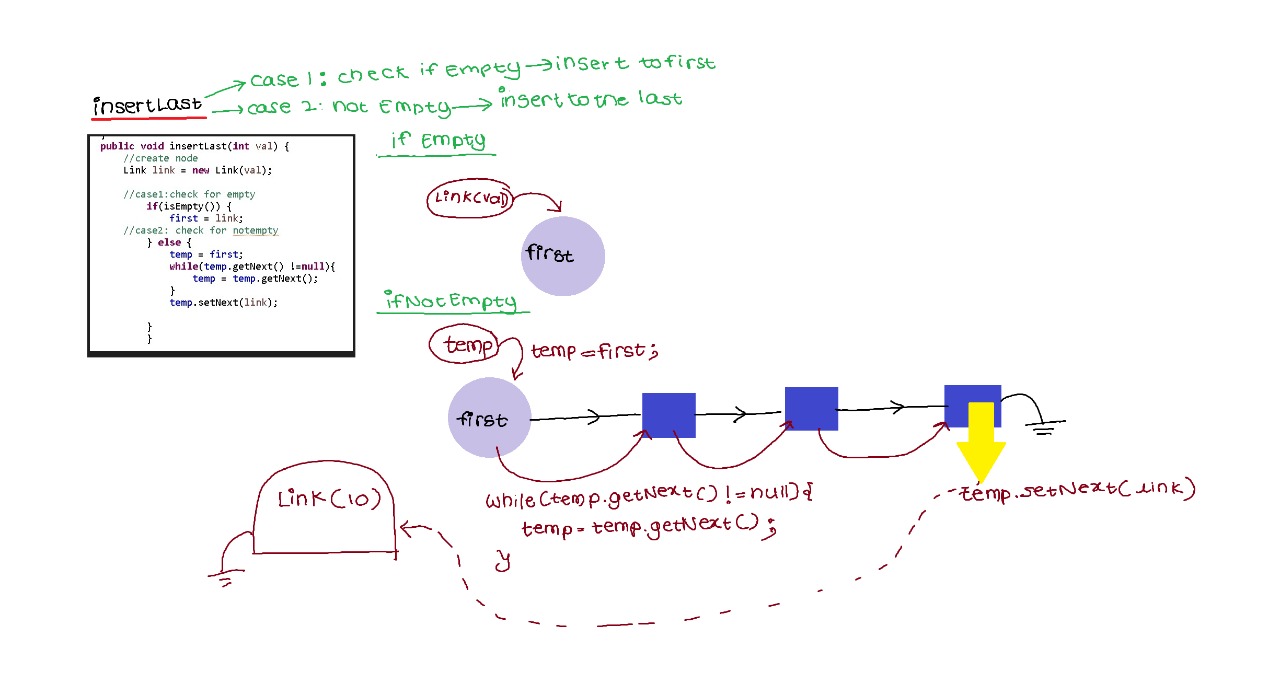 case 1: check if Empty → insert to first
insertLast
case 2: not Empty → insert to the last
if Empty
public void insertLast(int val) {
//create node
Link link = new Link(val);
//case1:check for empty
if(isEmpty()) {
first = link;
//case2: check for notempty
} else {
temp = first;
while(temp.getNext() !=null){
temp = temp.getNext();
}
temp.setNext(link);
}
}
Link(val)
first
ifNotEmpty
temp
temp=first;
first
Link(10)
while(temp.getNext() != null){
temp = temp.getNext();
}
temp.setNext(link)